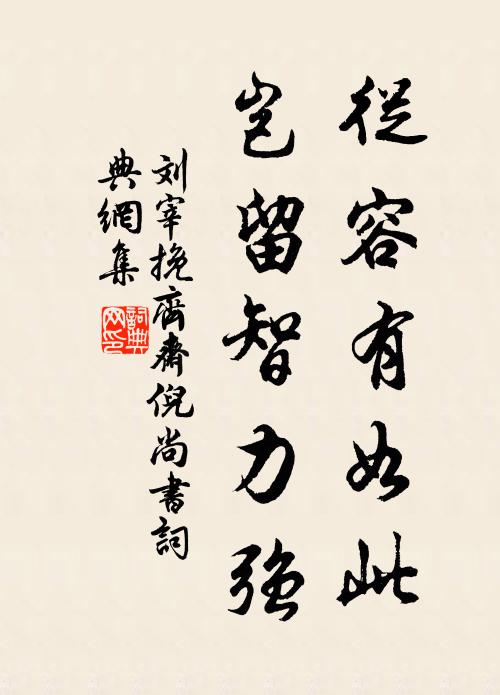 從容有如此
岂留智力强
刘宰挽齊齋倪尚書詞
典網集
詞典
网印